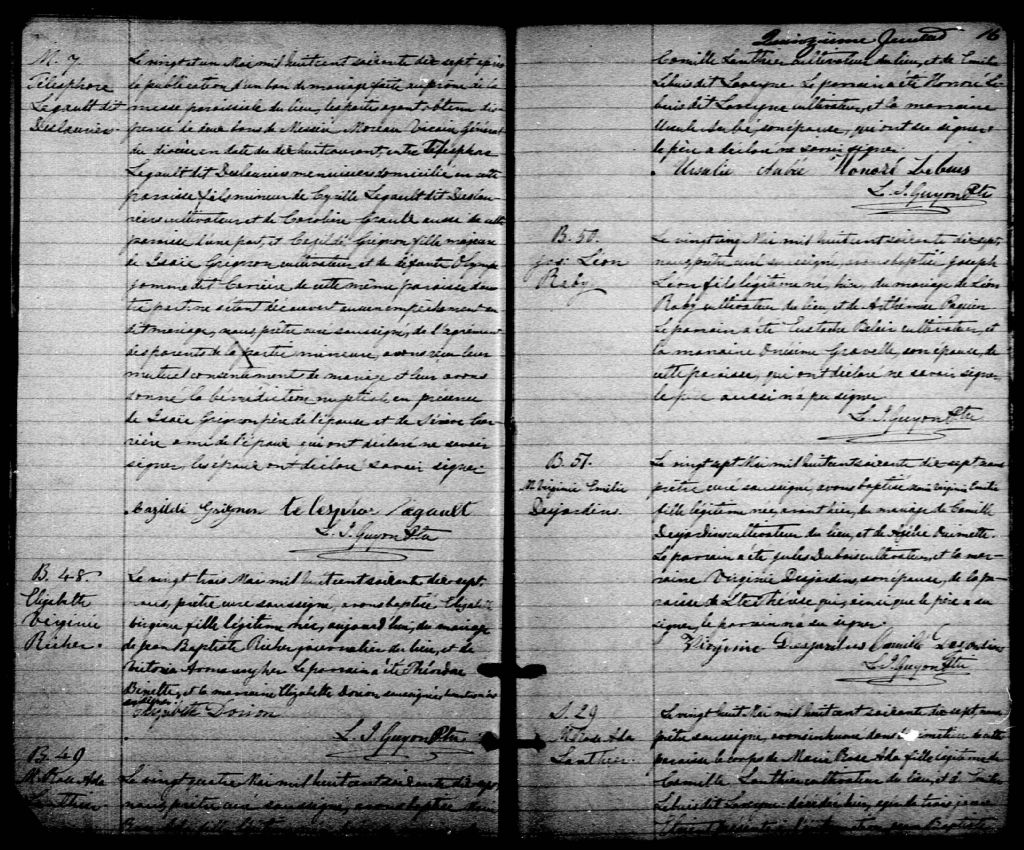 M. 7
Télésphore
Légault dit
Deslaurier.
Le vingt et un Mai mil huit cent soixante dix sept après
la publication d'un ban de mariage faite au prône de la
messe paroissiale du lieu, les parties ayant obtenu dis
pense de deux bans de Messire Moreau Vicaire Général
du diocèse en date du dix huit courant, entre Télésphore
Legault dit Deslauriers menuisier domicilié en cette
paroisse fils mineur de Cyrille Legault dit Deslau
riers cultivateur et de Caroline Grauld aussi de cette
paroisse d'une part, et Cazildé Grignon fille majeure
de Isaïe Grignon cultivateur, et de défunte Olympe
Jomme dit Carrière de cette même paroisse d'au
tre part. ne s'étant découvert aucun empêchement au
dit mariage, nous, prêtre curé soussigné, de l'agrément
des parents de la partie mineure, avons reçu leur
mutuel consentement de mariage et leur avons
donné la bénédiction nuptiale en présence
de Isaïe Grignon père de l'épouse et de Siméon Car
rière ami de l'époux qui ont déclaré ne savoir
signer, les époux ont déclaré savoir signer
Cazildé Grignon telesphor Lagault
L. I. Guyon Ptr
B. 48.
Elizabeth
Virginie
Richer.
Le vingt trois Mai mil huit cent soixante dix sept
nous, prêtre curé soussigné, avons baptisé Elizabeth
Virginie fille légitime née, aujourd'hui, du mariage
de Jean Baptiste Richer journalier du lieu, et de
Victoria. Le parrain a été Théodore
et la marraine Elizabeth Dorion soussignée
Elizabeth Dorion
L. I. Guyon Ptr
B. 49
M. Rose Ada
Lanthier
Le vingt quatre Mai mil huit cent soixante dix sept
nous, prêtre curé soussigné, avons baptisé Marie
Rose Ada fille
Quinzième feuillet 16
Camille Lanthier cultivateur du lieu, et de Emilie
Lebuis dit Lavergne. Le parrain a été Honoré Le
buis dit Lavergne cultivateur, et la marraine
Ursule Aubé, son épouse, qui ont su signer
le père a déclaré ne savoir signer.
Ursulie Aubée Honoré Lebuis
L. I. Guyon Ptr
B. 50.
Jos: Léon
Raby
Le vingt cinq Mai mil huit cent soixante dix sept
nous prêtre curé soussigné, avons baptisé Joseph
Léon fils légitime né, hier, du mariage de Léon
Raby cultivateur du lieu, et de Arthémise Paquin
Le parrain a été Eustache Belair cultivateur, et
la marraine Onésime Gravelle, son épouse, de
cette paroisse, qui ont déclaré ne savoir signer
le père aussi n'a pu signer
L. I. Guyon Ptr
B. 51.
M. Virginie Emélie
Desjardins.
Le vingt sept Mai mil huit cent soixante dix sept nous
prêtre curé soussigné, avons baptisé Marie Virginie Emélie
fille légitime née, avant hier, du mariage de Camille
Desjardins cultivateur du lieu, et de Ouimette.
Le parrain a été Jules Dubois cultivateur, et la mar
raine Virginie Desjardins, son épouse, de la pa
roisse de Ste Thérèse qui, ainsi que le père a su
signer, le parrain n'a su signer.
Virginie Desjardins Camille Desjardins
L. I. Guyon Ptr
S. 29
M. Rose Ada
Lanthier.
Le vingt huit Mai mil huit cent soixante dix sept nous
prêtre soussigné, avons inhumé dans le cimetière de cette
paroisse le corps de Marie Rose Ada fille légitime de
Camille Lanthier cultivateur du lieu, et d'Emilie
Lebuis dit Lavergne décédée hier, agée de trois jours
Etaient présents à l'inhumation Baptiste